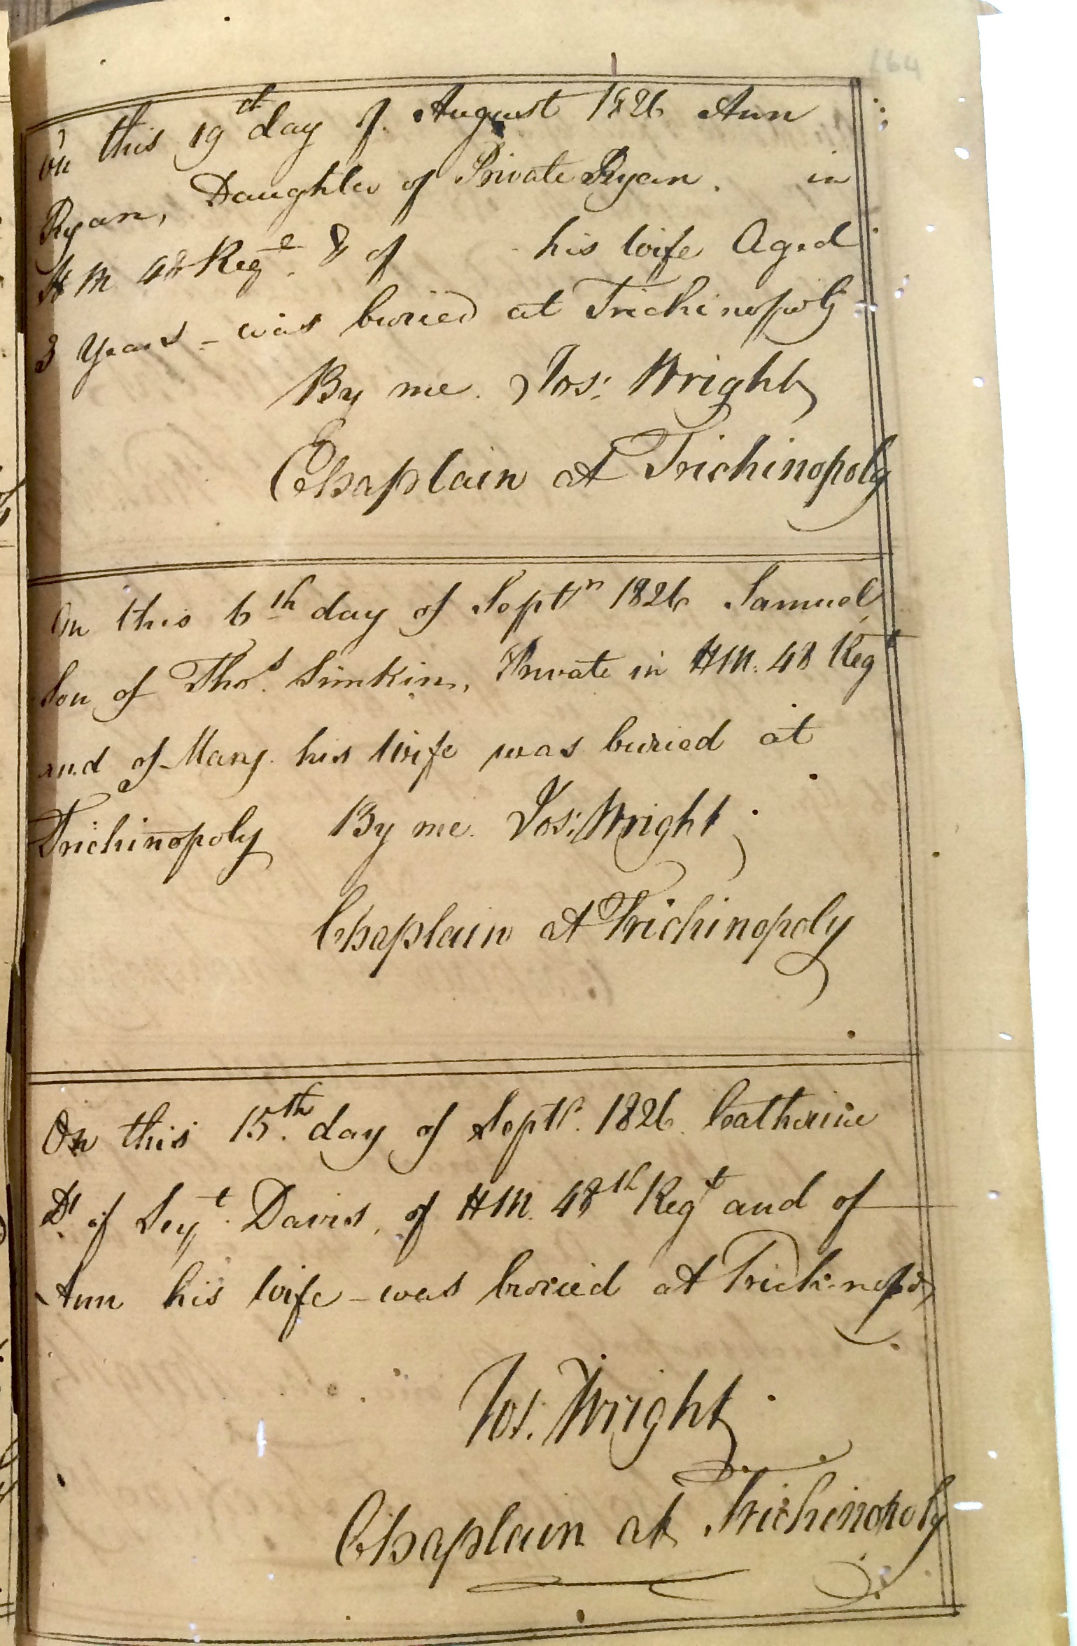 164
On this 19th day of August 1826 Ann
Ryan, Daughter of Private Ryan. in
H M 48 Regt. & of his wife Aged
3 Years - was buried at Trichinopoly
By me. Jos: Wright
Chaplain at Trichinopoly
On this 6th day of Septr 1826 Samuel
Son of Thos. Simkin, Private in HM. 48 Regt
and of Mary his Wife was buried at
Trichinopoly By me. Jos: Wright
Chaplain at Trichinopoly
On this 15th day of Septr. 1826. Catherine
Dr of Sejt. Davis, of HM. 48th Regt and of
Ann his wife - was buried at Trichinopoly
Jos. Wright
Chaplain at Trichinopoly